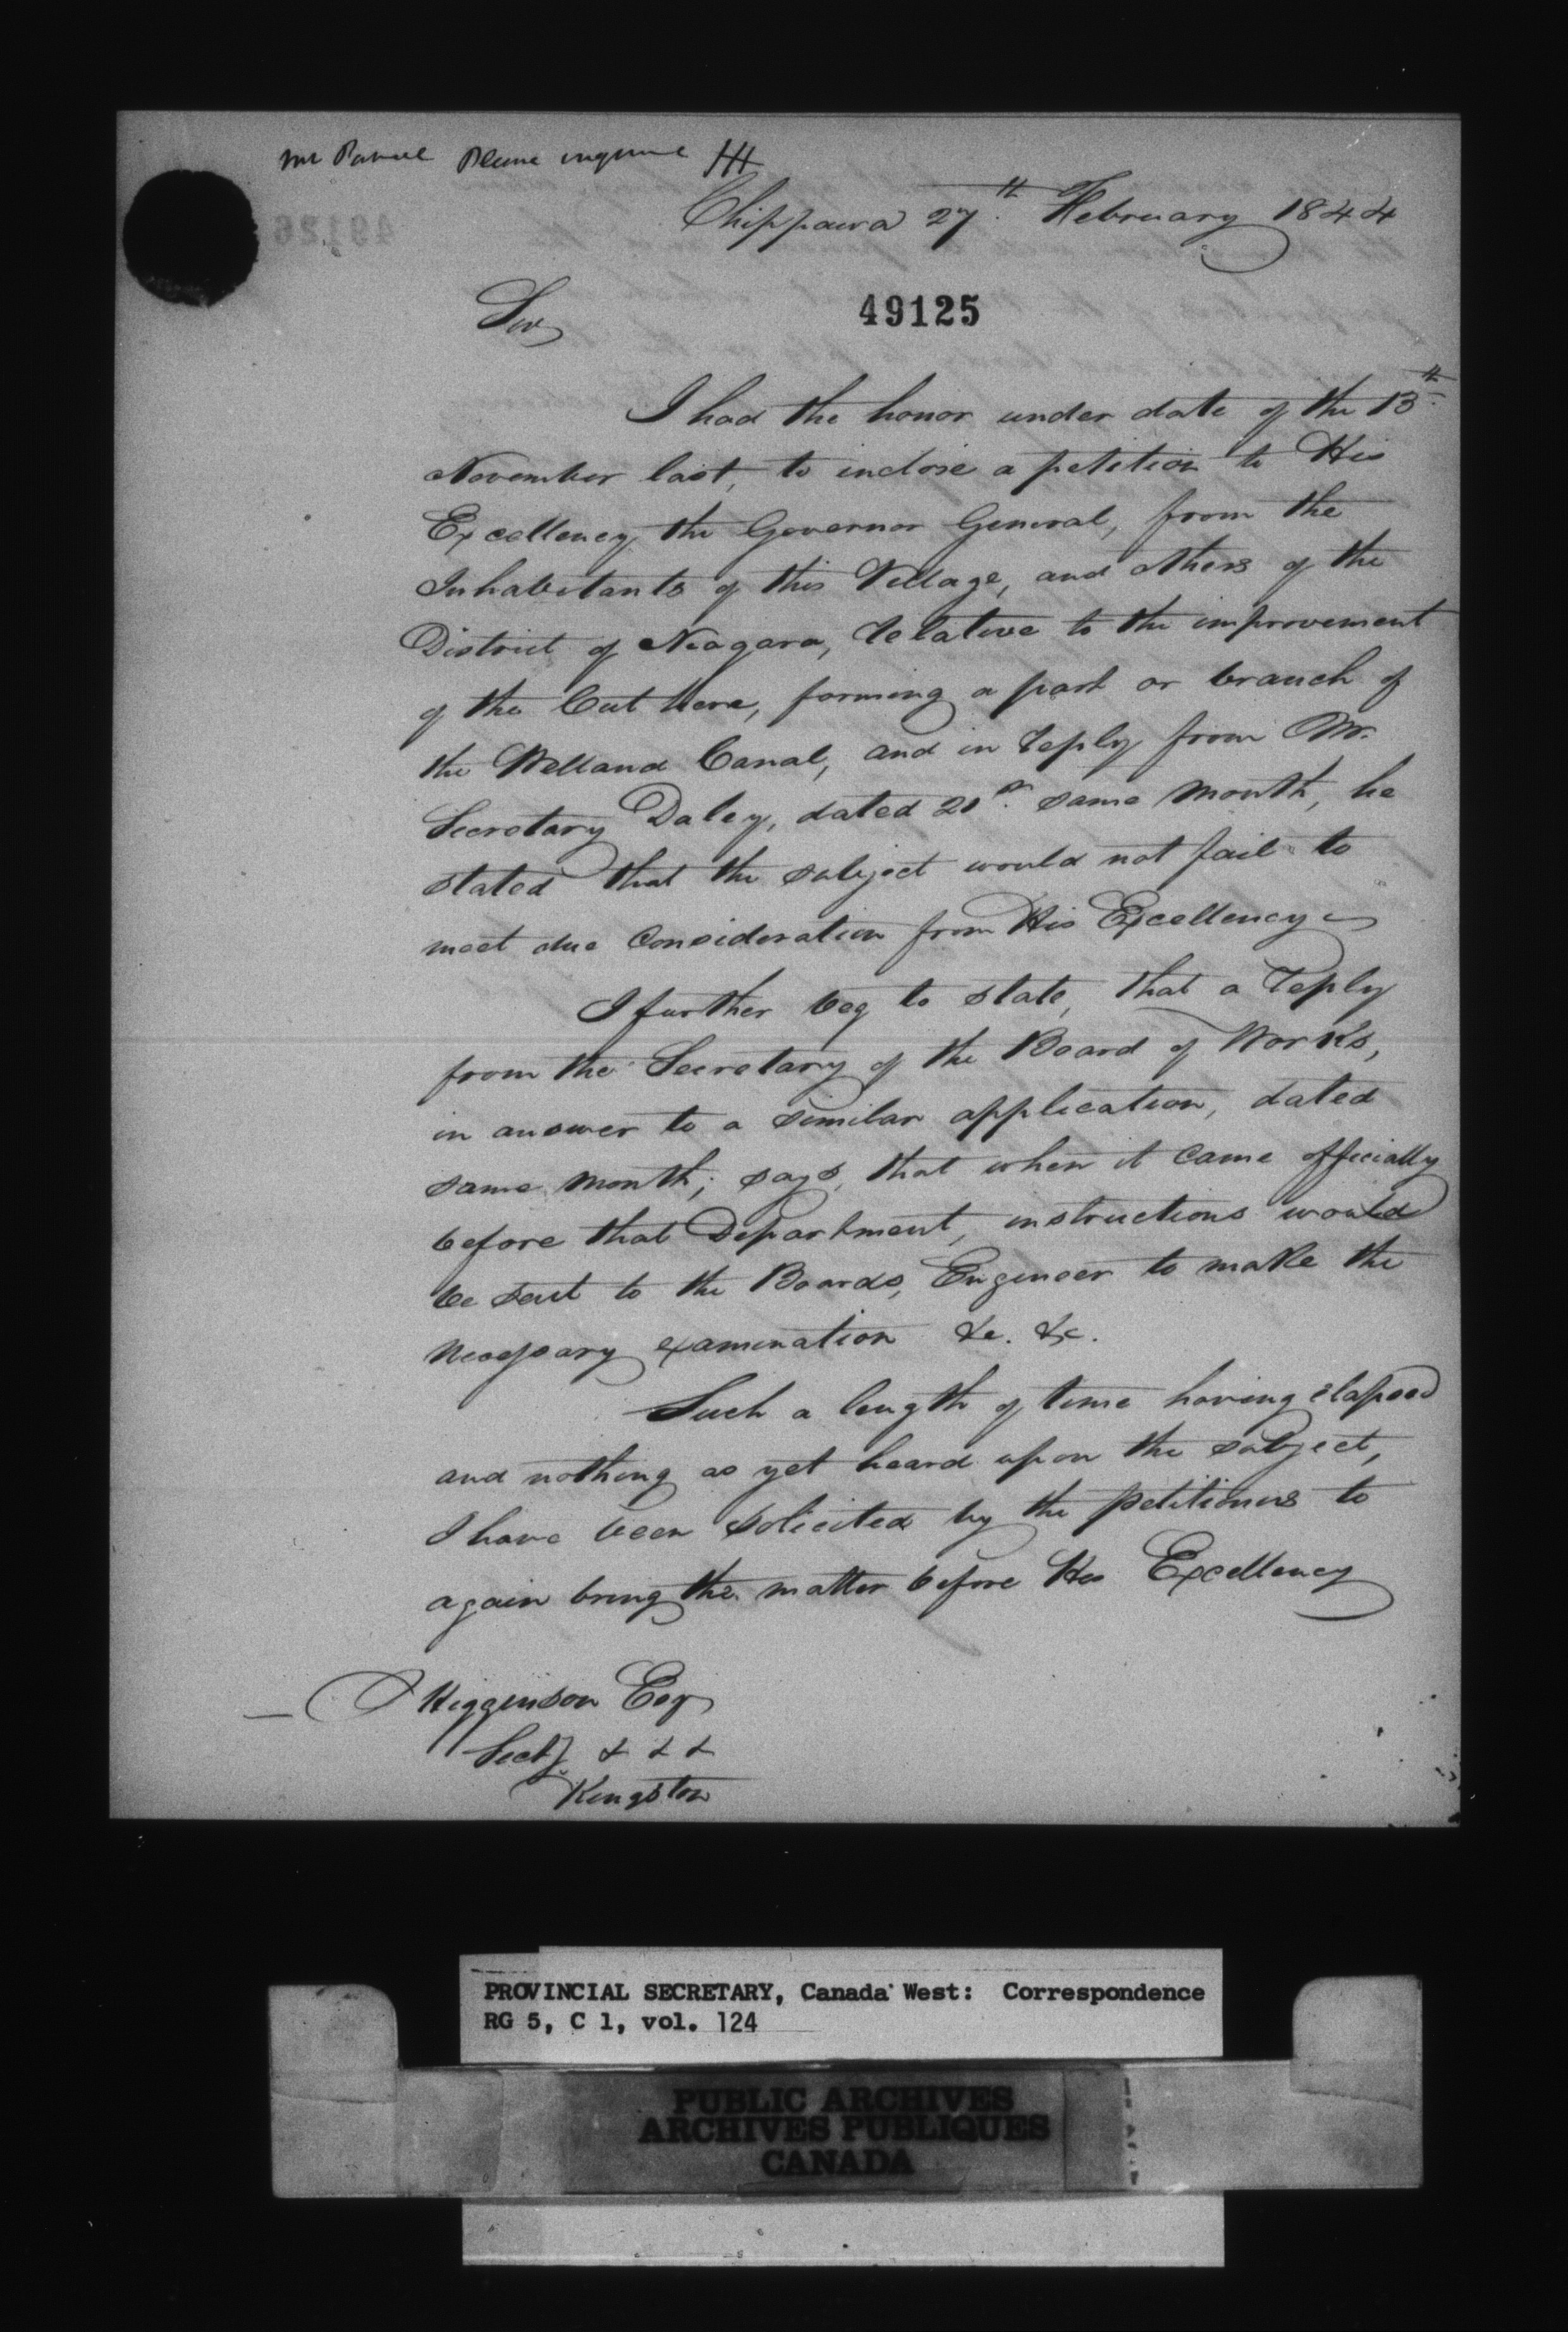 Please
Chippawa 27th February 1844
Sir
49125
I had the honor under date of the 13th
November last, to inclose a petition to His
Excellency the Governor General, from the
Inhabitants of this Village, and others of the
District of Niagara, relative to the improvement
of the Cut here, forming a part or branch of
the Welland Canal, and in reply from Mr.
Secretary Daley, dated same month, he
stated that the subject would not fail to
meet due Consideration from His Excellency
I further beg to state, that a reply
from the Secretary of the Board of Works,
in answer to a similar application, dated
same month; says, that when it came officially
before that Department, instructions would
be sent to the Boards, Engineer to make the
necessary examination &c. &c.
Such a length of time having elapsed
and nothing as yet heard upon the subject,
I have been solicited by the petitioners to
again bring the matter before His Excellency
Higginson Esq
Secty & & &
Kingston
PROVINCIAL SECRETARY, Canada West: Correspondence
RG 5, C 1, vol. 124
PUBLIC ARCHIVES
ARCHIVES PUBLIQUES
CANADA